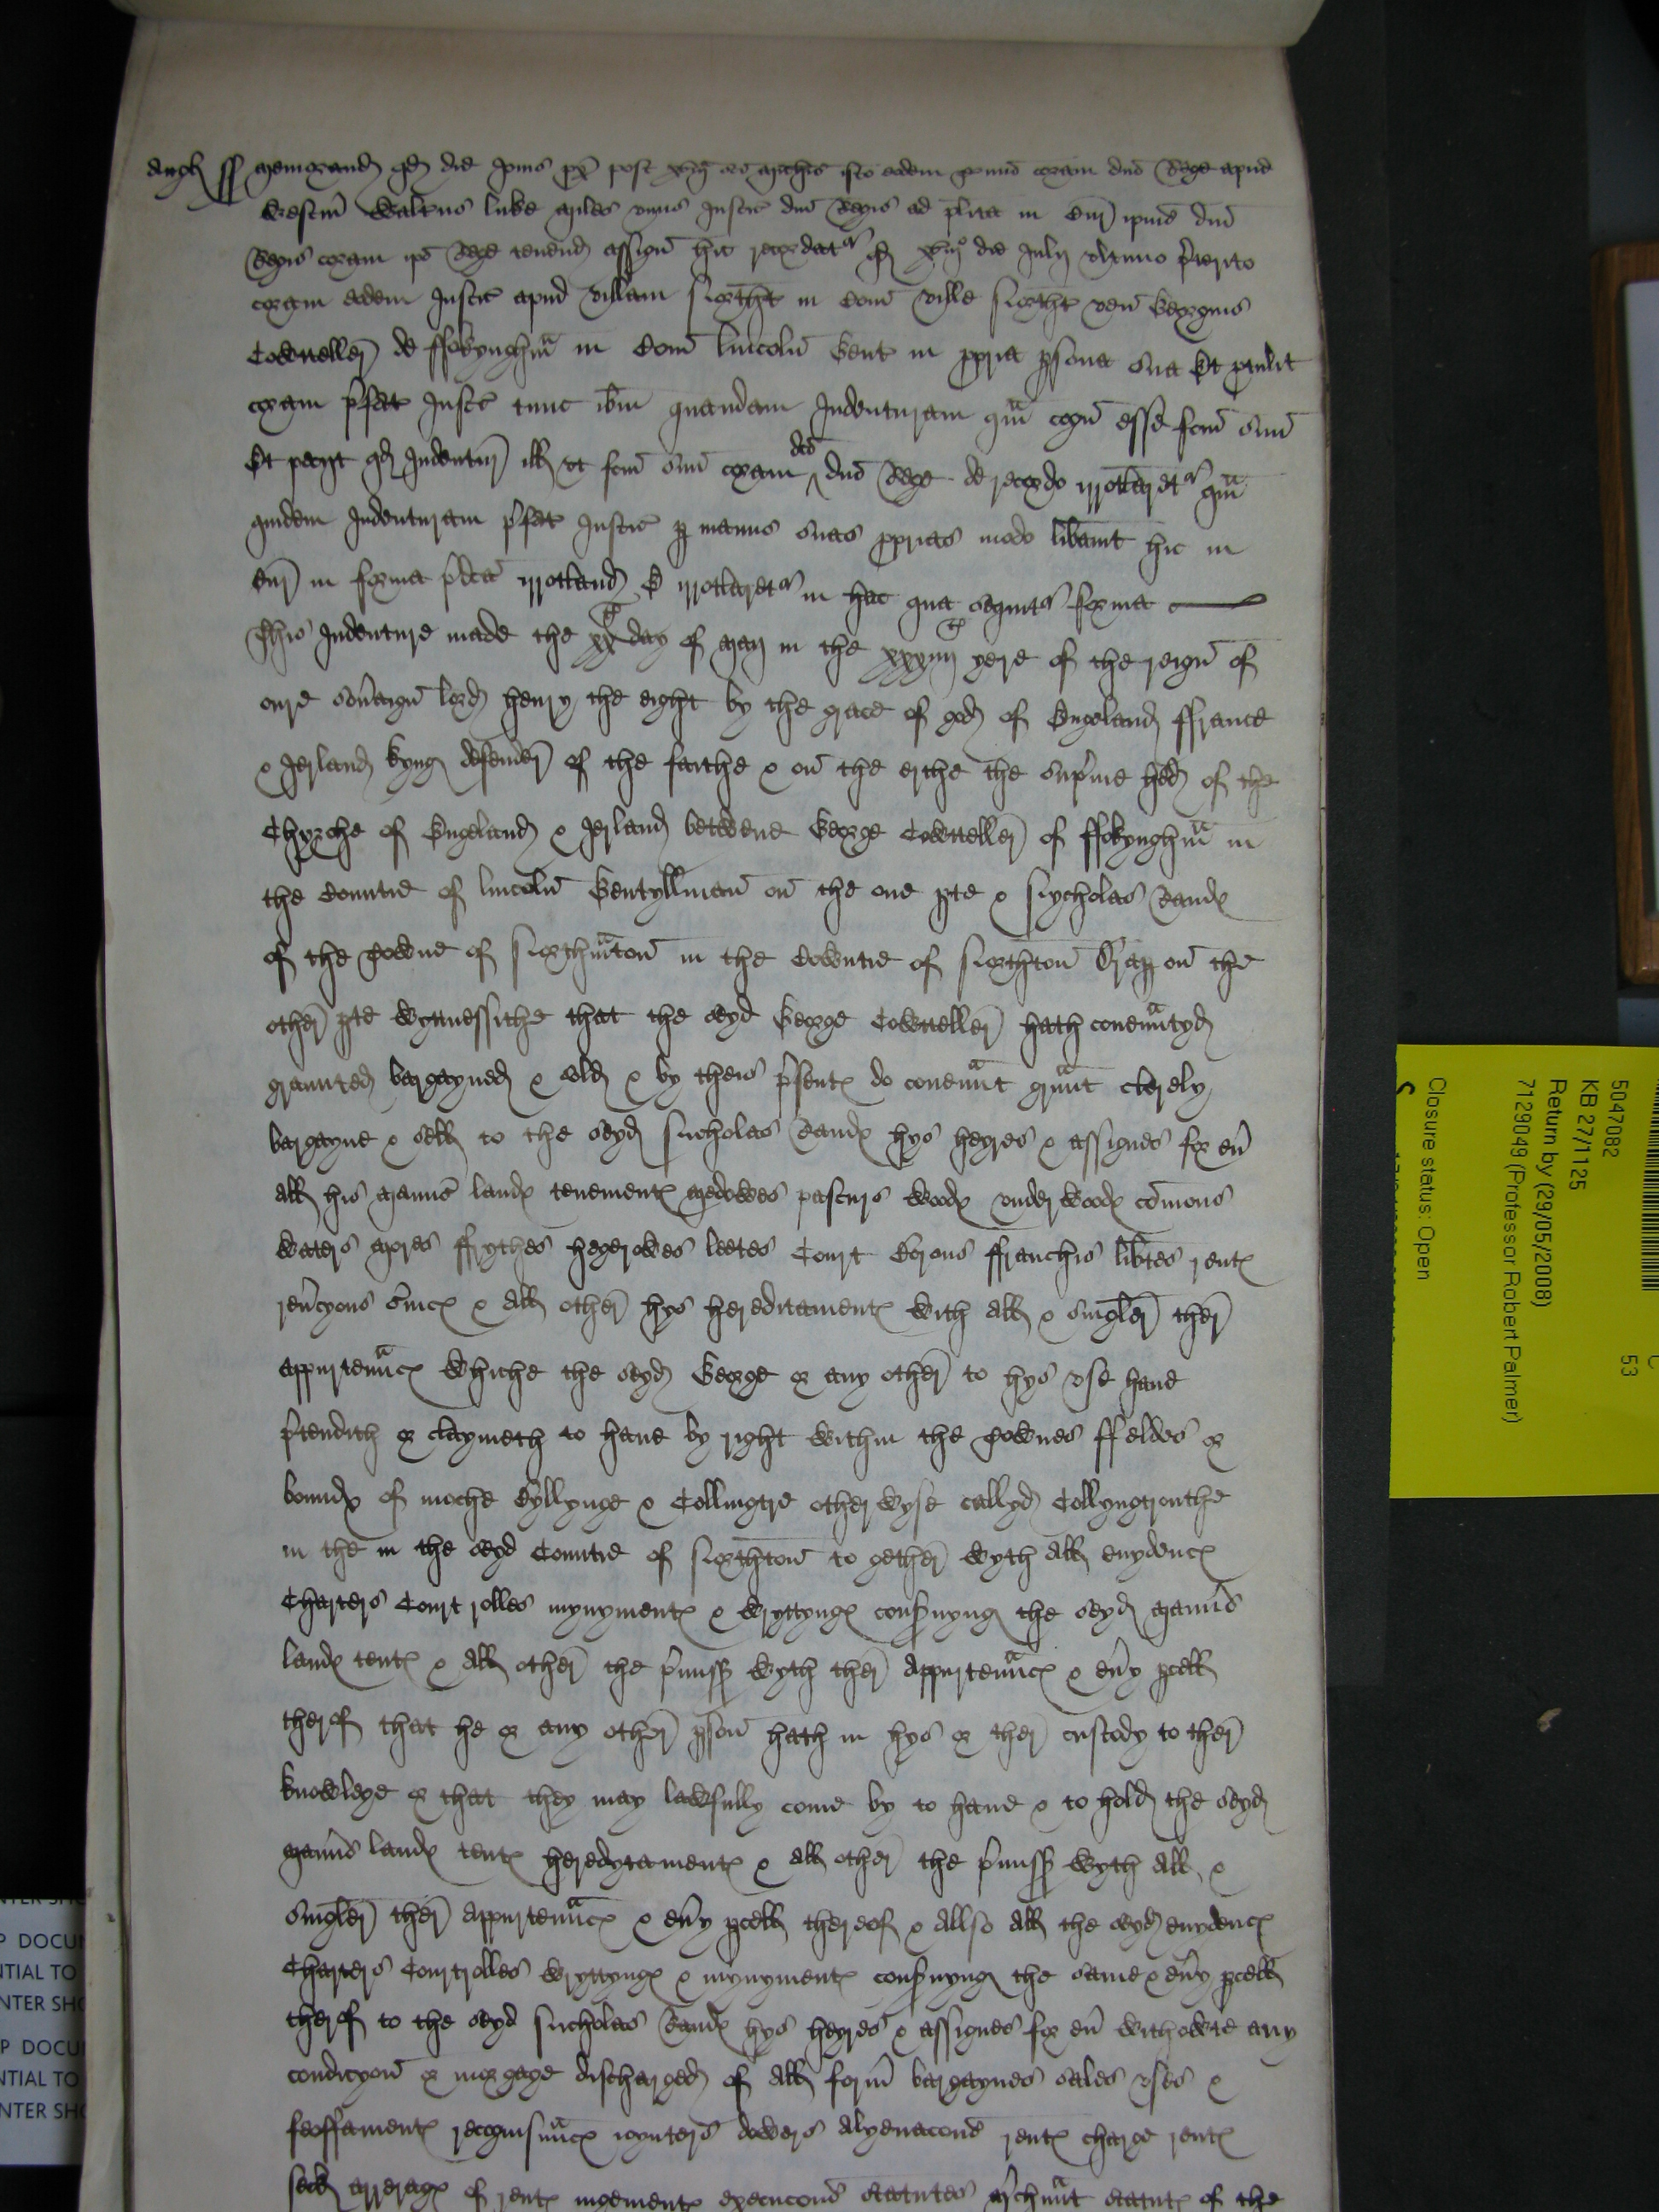 Angl ss Memorand qd die Jovis px post xvam sci Michis isto eodem termino coram dno Rege apud
Westm Walterus luke Miles unus Justic dni Regis ad plita in Cur ipius dni
Regis coram ipo Rege tenend assign hic recordatr qd die Julij ultimo pterito
coram eodem Justic apud villam Northt in Com ville Northt ven Georgius
Cowtteller de ffokynghm in Com lincoln Gent in ppria psona sua Et ptulit
coram pfat Justic tunc ibm quandam Indenturam qam cogn esse fcm suu
Et petijt qd Indentur ill ut fcm suu coram dco dno Rege de recordo irrotletr qam
quidem Indenturam pfat Justic p manus suas pprias modo libavit hic in
Cur in forma pdca irrotland & irrotletr in hac qua sequitr forma
This Indenture made the xxth day of May in the yere of the reign of
oure sovaign lord henry the eight by the grace of god of Engeland ffrance
& Jerland kyng defender of the faithe & on the erthe the supme hed of the
Chyrche of Engeland & Jerland betwene George Cowtteller of ffokynghm in
the Countie of lincoln Gentyllman on the one pte & Nycholas Rande
of the Towne of Northmton in the Cowntie of Northton Drap on the
other pte wyttnessithe that the seyd George Cowtteller hath covenntyd
graunted bargayned & sold & by theis psente do covennt grunt clerely
bargayne & sell to the seyd Nicholas Rande hys heyres & assignes for ev
all his Mannes lande tenemente Medowes pasturs woode underwoode comons
waters Mores ffrythes hegerowes leetes Court Barons ffranchis libtes rente
revcyons svice & all other hys hereditamente with all & singler ther
appurtennce whiche the seyd George or any other to hys use have
ptendith or claymeth to have by right within the Townes ffeldes or
bounde of moche Byllynge & Collingtre otherwyse callyd Collyngtrouthe
in the in the seyd Countie of Northton to gether wyth all evydence
Charters Court rolles mynymente & wryttynge consnyng the seyd Manns
lande tente & all other the pmiss wyth ther appurtennce & evy pcell
therof that he or any other pson hath in hys or ther custody to ther
knowlege or that they may lawfully come by to have & to hold the seyd
Manns lande tente heredytamente & all other the pmiss wyth all &
singler ther appurtennce & evy pcell thereof & allso all the seyd evydence
Charters Courtrolles wryttynge & mynymente consnyng the same & evy pcell
therof to the seyd Nicholas Rande hys heyres & assignes for ev withowte any
condicyon or morgage discharged of all form bargaynes sales uses &
feoffamente recognisnnce joynters dowers alyenacons rente charge rente
seck arrerage of rente jugemente execucons statutes Mchnnt statute of the
5047082
KB 27/1125
Return by (29/05/2008)
7129049 (Professor Robert Palmer)
Closure status: Open
53